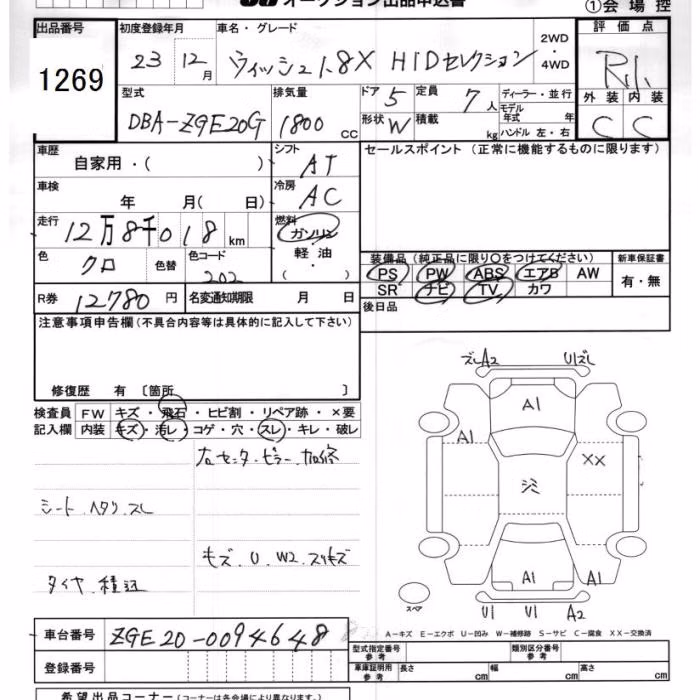 オークション出品申込書
①会場控
出品番号 初度登録年月 車名・グレード 評価点
1269 23 12月 ウィッシュ1.8X HIDセレクション 2WD・4WD
型式 排気量 ドア 5 定員 7人 ディーラー・並行 外装 内装
DBA-ZGE20G 1800cc 形状 W 積載 kg モデル年式 年 ハンドル 左・右 C C
車歴 自家用・( ) シフト AT セールスポイント (正常に機能するものに限ります)
車検 年 月( 日) 冷房 AC
走行 12万8千018km 燃料 ガソリン・軽油・( )
色 クロ 色替 色コード 202
装備品 (純正品に限り○をつけてください) 新車保証書
PS PW ABS エアB AW 有・無
SR ナビ TV カワ
R券 12780円 名変通知期限 月 日 後日品
注意事項申告欄 (不具合内容等は具体的に記入して下さい)
修復歴 有 〔箇所 〕
検査員記入欄 FW キズ・飛石・ヒビ割・リペア跡・×要
内装 キズ・汚レ・コゲ・穴・スレ・キレ・破レ
右センターピラー加修
シート.ヘタリ.スレ
キズ.U.W2.スリキズ
タイヤ.積込
ズレA2 U1ズレ
A1
A1
XX
シミ
A1 A1
スペア
U1 U1 A2
A-キズ E-エクボ U-凹み W-補修跡 S-サビ C-腐食 XX-交換済
車台番号 ZGE20-0094648
登録番号
型式指定番号 参考 類別区分番号 参考
車庫証明用 参考 長さ cm 幅 cm 高さ cm
希望出品コーナー (コーナーは各会場により異なります。)